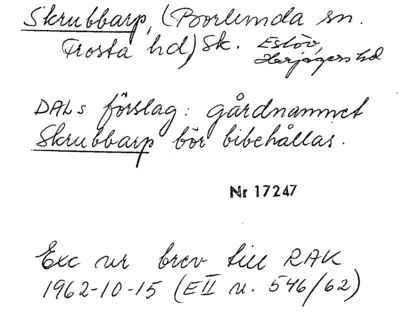 Skrubbarp, (Borlunda sn.
Frosta hd) Sk. Eslöv,
Harjagers hd
DALs förslag: gårdnamnet
Skrubbarp bör bibehållas.
Nr 17247
Exc ur brev till RAK
1962-10-15 (EII u. 546/62)